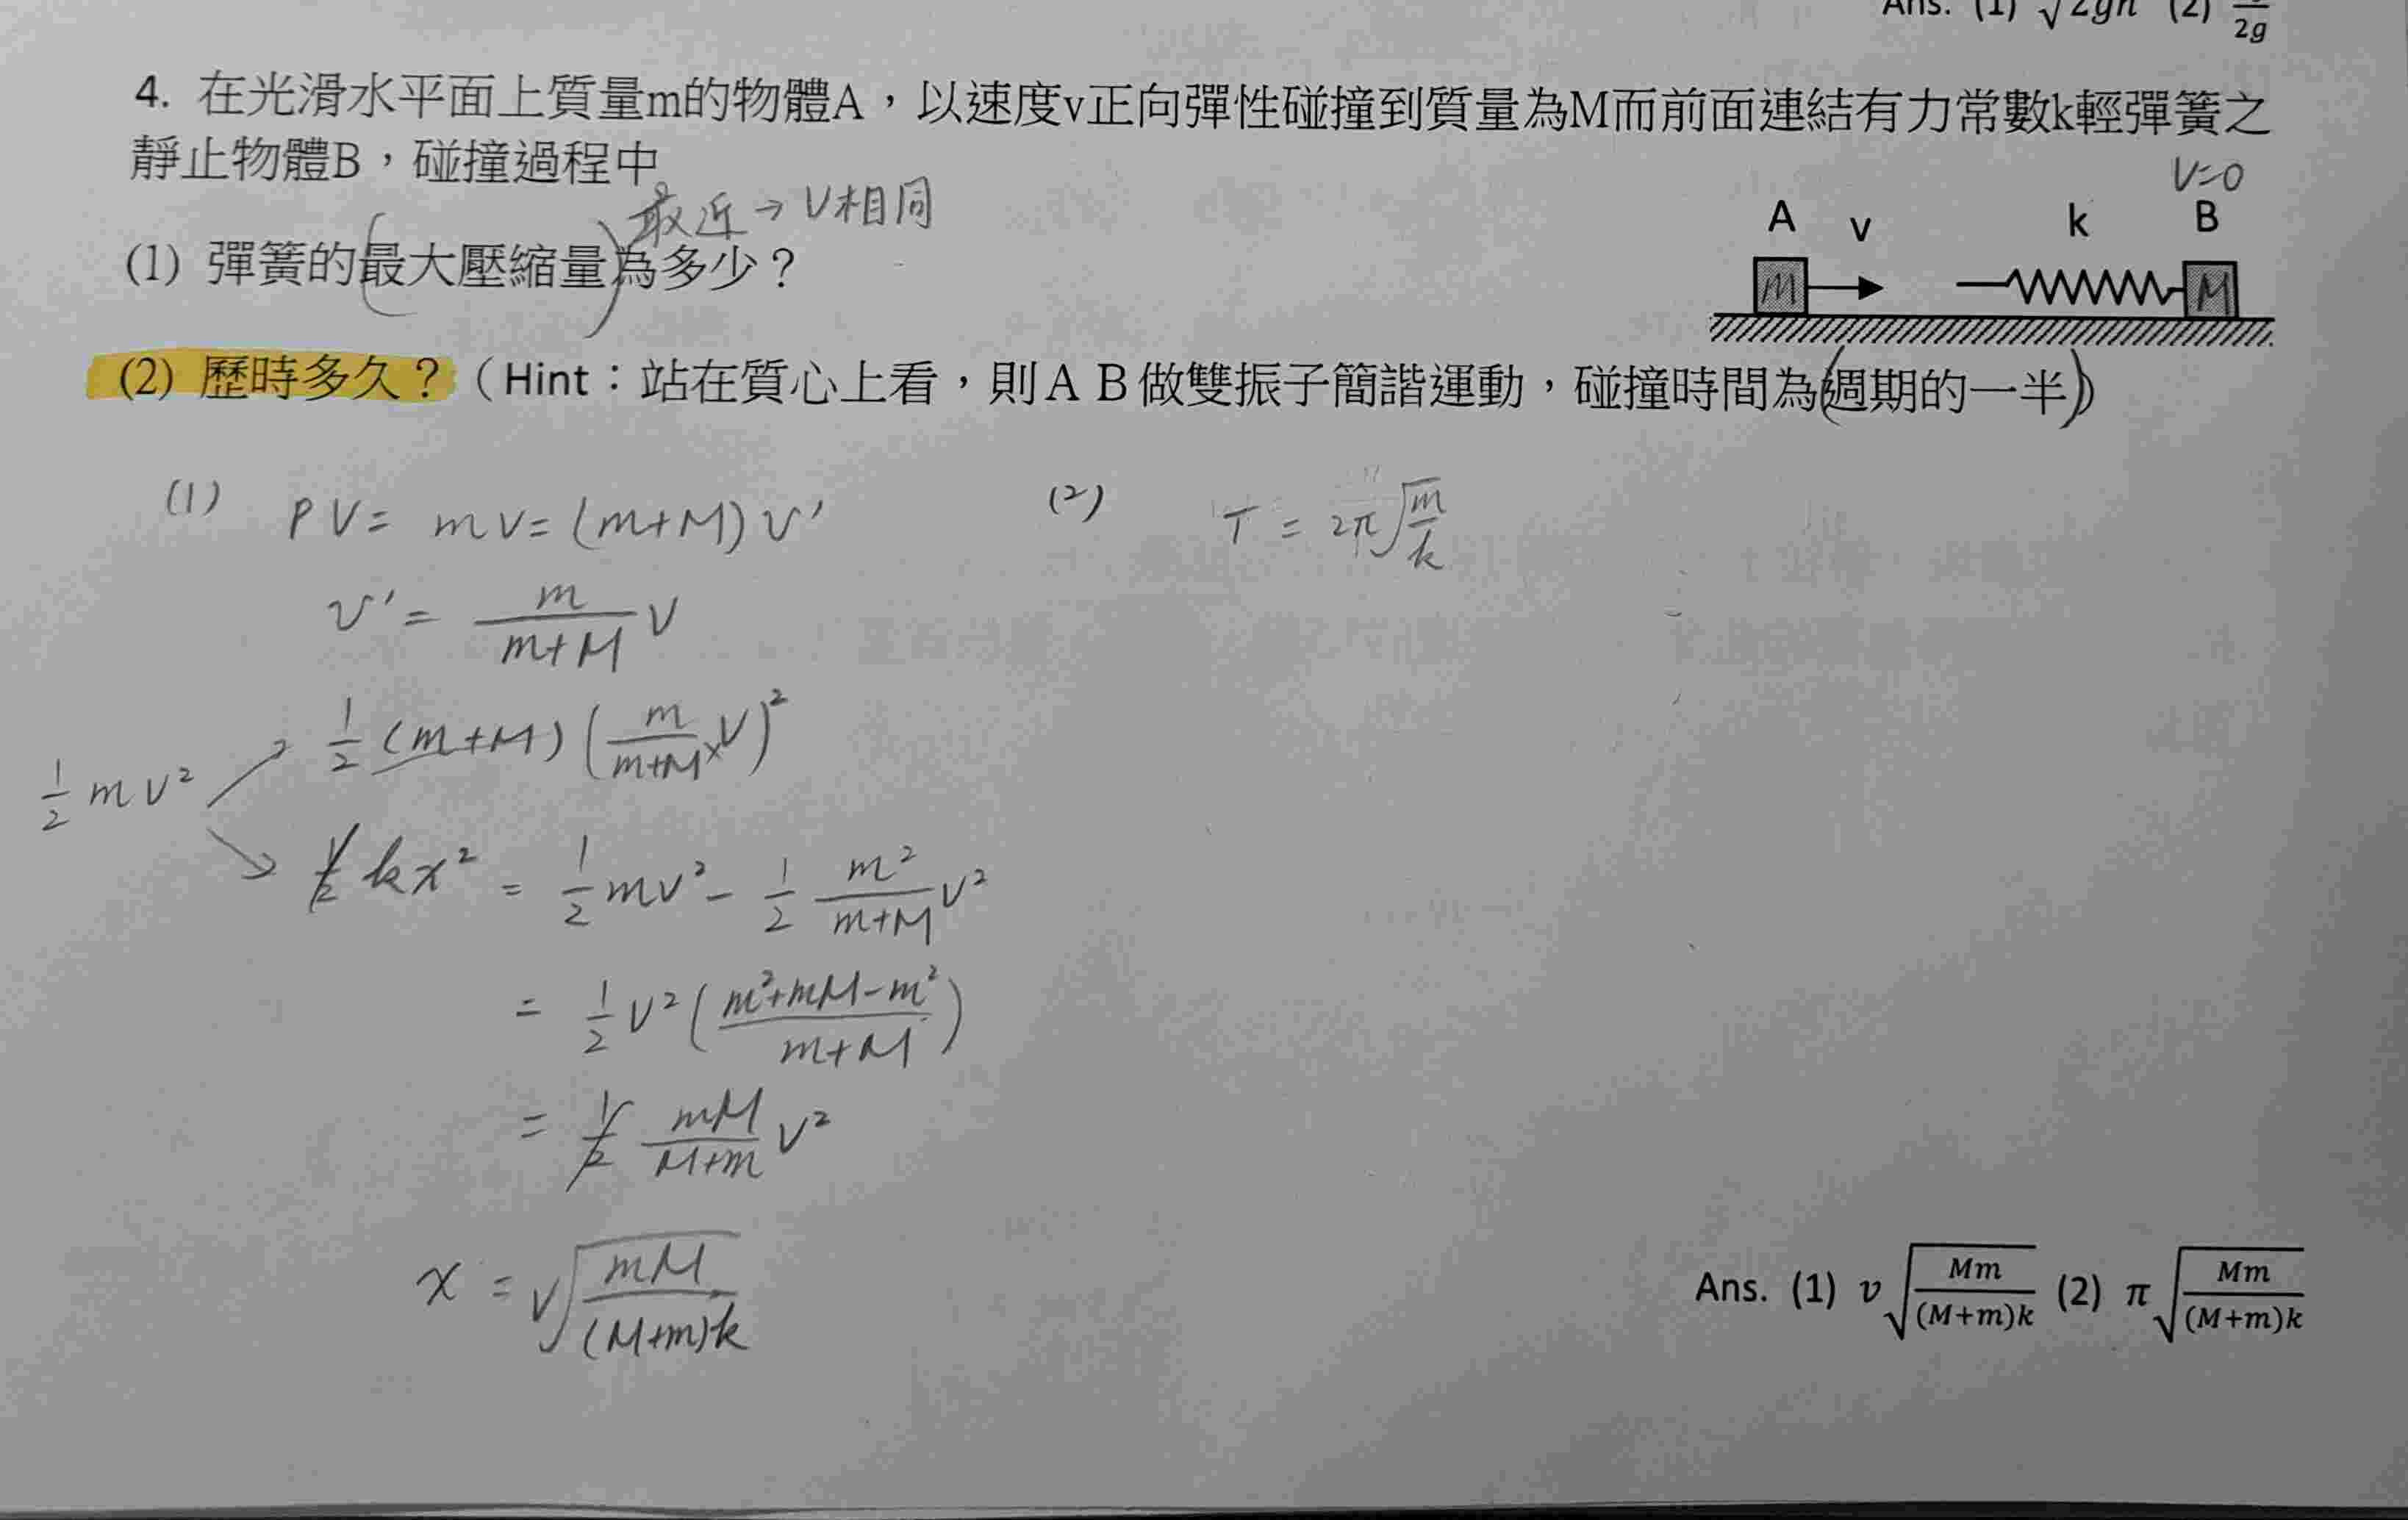 Ans. (1) √2gh (2) 2g
4. 在光滑水平面上質量m的物體A，以速度v正向彈性碰撞到質量為M而前面連結有力常數k輕彈簧之
靜止物體B，碰撞過程中
最近→V相同
V=0
A v k B
(1) 彈簧的(最大壓縮量)為多少？
m M
(2) 歷時多久？（Hint：站在質心上看，則ＡＢ做雙振子簡諧運動，碰撞時間為(週期的一半)）
(1) PV= mV=(m+M)v'
(2) T = 2π√(m/k)
v' = m/(m+M) V
1/2 mV² ↗ 1/2 (m+M) (m/(m+M) × V)²
↘ 1/2 kx² = 1/2 mV² - 1/2 m²/(m+M) V²
= 1/2 V² ( (m²+mM-m²)/(m+M) )
= 1/2 mM/(M+m) V²
x = V√(mM/((M+m)k))
Ans. (1) v√(Mm/((M+m)k)) (2) π√(Mm/((M+m)k))